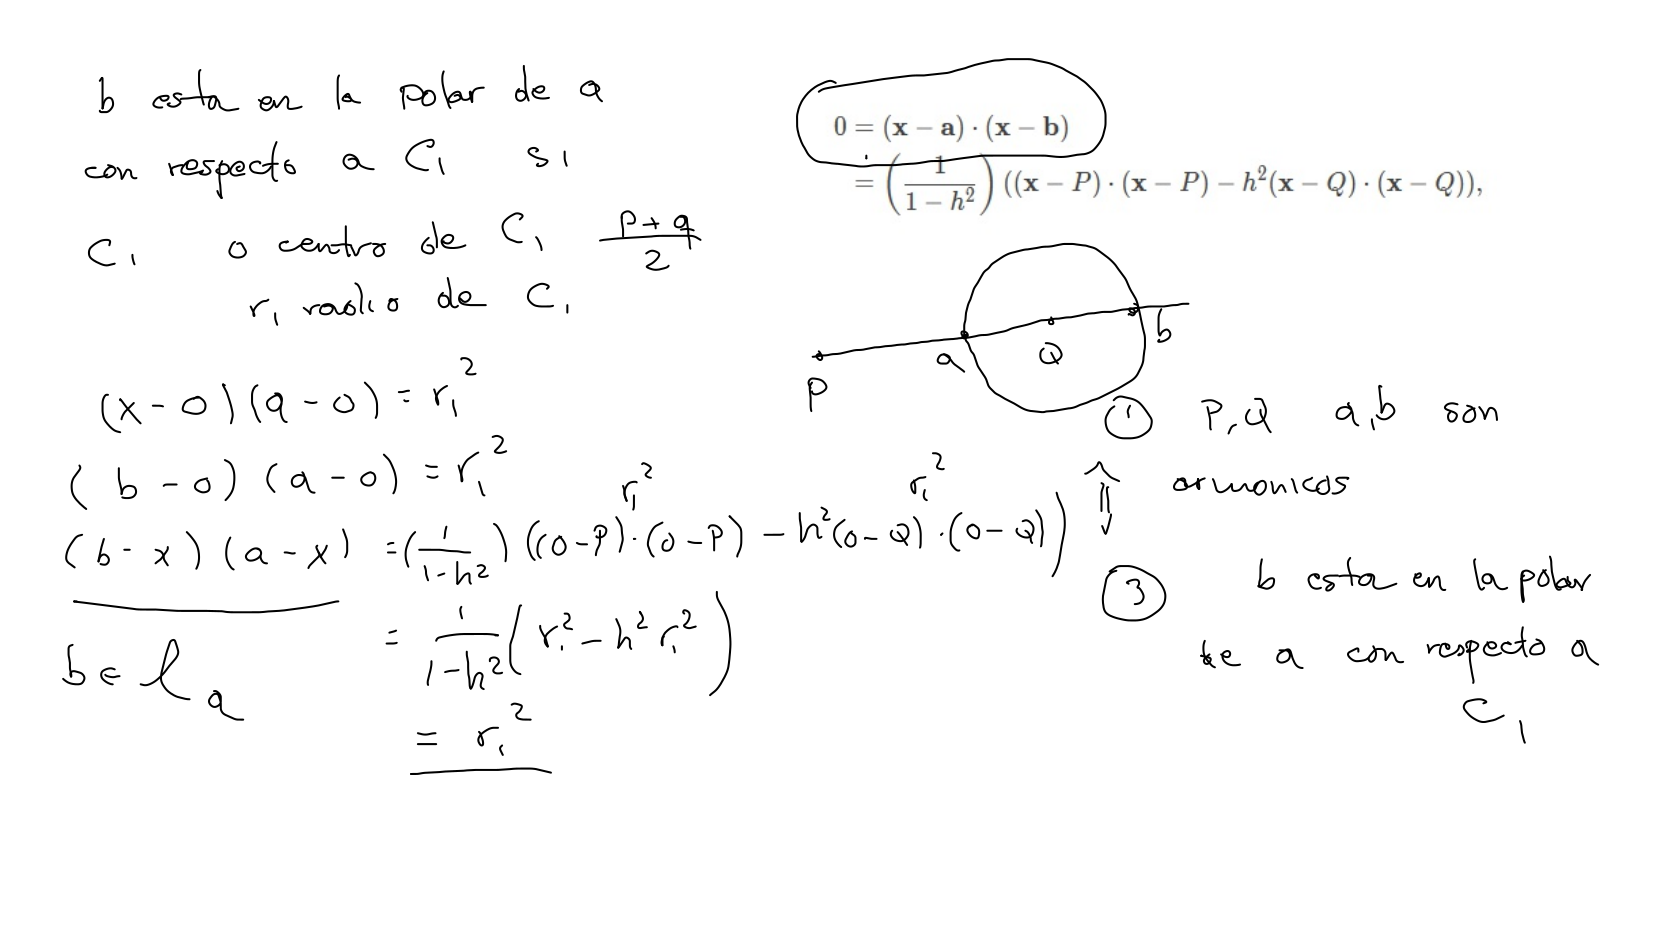 b esta en la polar de a
con respecto a C₁ si
C₁ o centro de C₁ (p+q)/2
r₁ radio de C₁
(x - o)(a - o) = r₁²
(b - o)(a - o) = r₁²
(b - x)(a - x) = (1/(1-h²))((o-P)·(o-P) - h²(o-Q)·(o-Q))
r₁² r₁²
= 1/(1-h²) (r₁² - h² r₁²)
b ∈ ℓₐ
= r₁²
0 = (x − a) · (x − b)
= (1/(1 − h²)) ((x − P) · (x − P) − h²(x − Q) · (x − Q)),
P a Q b
① P,Q a,b son
armonicos
⇕
③ b esta en la polar
de a con respecto a
C₁